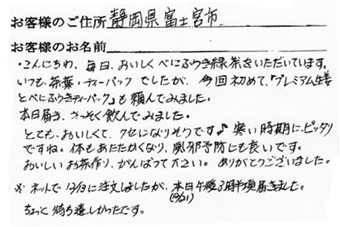 お客様のご住所 静岡県富士宮市
お客様のお名前
・こんにちわ、毎日、おいしくべにふうき緑茶をいただいています。
いつも、茶葉・ティーパックでしたが、今回初めて、「プレミアム生姜
とべにふうきティーパック」も頼んでみました。
本日届き、さっそく飲んでみました。
とても、おいしくて、クセになりそうです♪寒い時期にピッタリ
ですね。体もあたたかくなり、風邪予防にも良いです。
おいしいお茶作り、がんばって下さい。ありがとうございました。
※ネットで12/13に注文しましたが、本日午後3時半頃届きました。
(12/21)
ちょっと待ち遠しかったです。